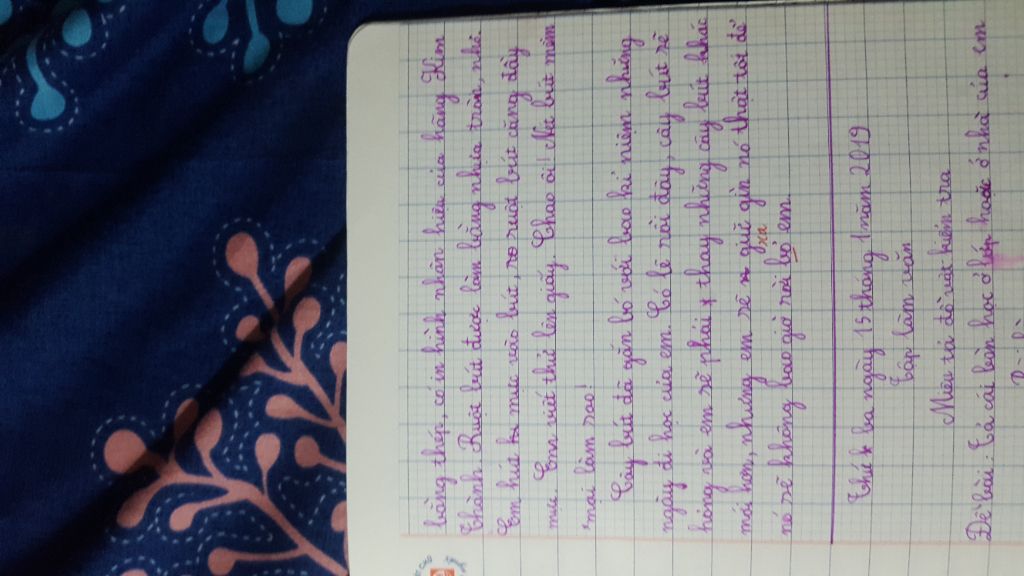 bằng thép, có in hình nhãn hiệu của hãng Kim
Thành. Ruột bút được làm bằng nhựa tròn, nhỏ.
Em hút mực vào bút, ruột bút căng đầy
mực. Em viết thử lên giấy. Chao ôi! Nét bút mềm
mại làm sao!
Cây bút đã gắn bó với bao kỉ niệm những
ngày đi học của em. Có lẽ rồi đây, cây bút sẽ
hỏng và em sẽ phải thay những cây bút khác
mới hơn, nhưng em sẽ giữ gìn nó thật tốt để
nó sẽ không bao giờ rời bỏ em.
xa
Thứ ba ngày 15 tháng 1 năm 2019
Tập làm văn
Miêu tả đồ vật kiểm tra
Đề bài: Tả cái bàn học ở lớp hoặc ở nhà của em